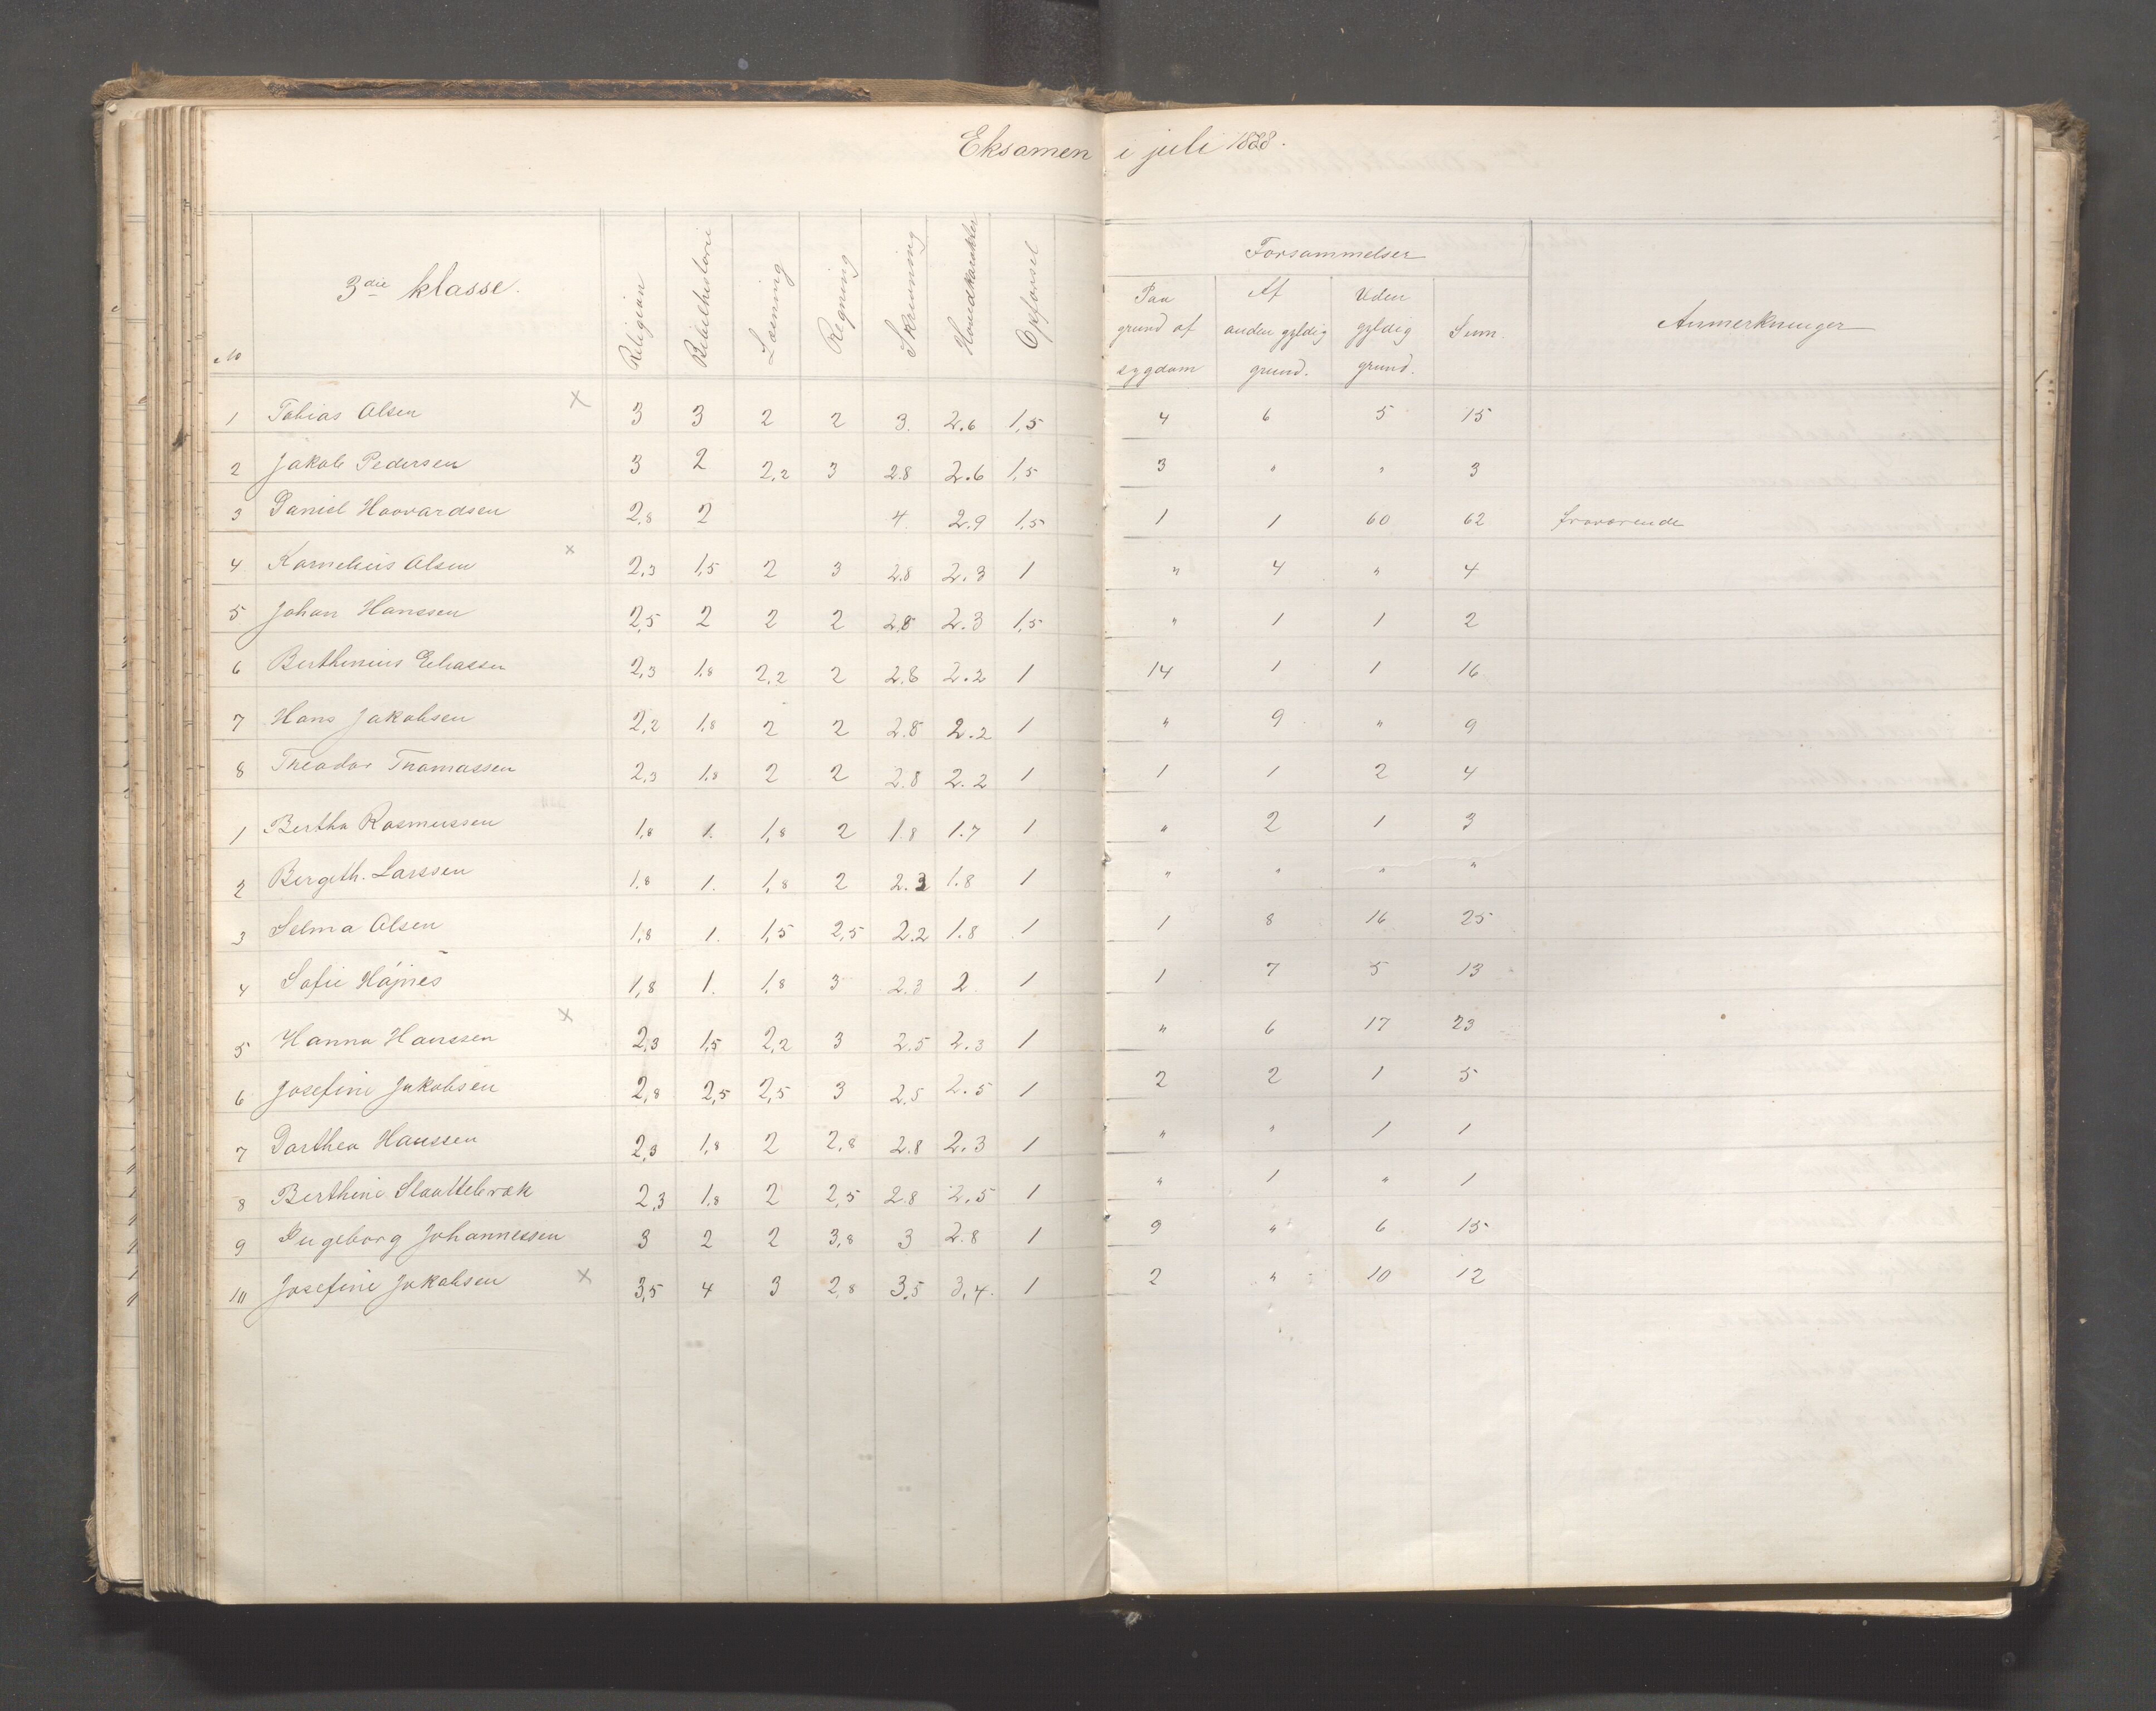 Eksamen i juli 1888.
No 3die klasse. Religion Bibelhistorie Læsning Regning Skrivning Hovedkarakter Opførsel Forsømmelser Anmerkninger
Paa grund af sygdom Af anden gyldig grund. Uden gyldig grund. Sum.
1 Tobias Olsen x 3 3 2 2 3. 2.6 1,5 4 6 5 15
2 Jakob Pedersen 3 2 2,2 3 2.8 2.6 1,5 3 " " 3
3 Daniel Haavardsen 2,8 2 4. 2.9 1,5 1 1 60 62 fraværende
4 Kornelius Olsen x 2,3 1,5 2 3 2.8 2.3 1 " 4 " 4
5 Johan Hanssen 2,5 2 2 2 2.8 2.3 1,5 " 1 1 2
6 Berthinius Eliassen 2,3 1,8 2,2 2 2.8 2.2 1 14 1 1 16
7 Hans Jakobsen 2,2 1,8 2 2 2.8 2.2 1 " 9 " 9
8 Theodor Thomassen 2,3 1,8 2 2 2.8 2.2 1 1 1 2 4
1 Bertha Rasmussen 1,8 1. 1,8 2 1.8 1.7 1 " 2 1 3
2 Bergith. Larssen 1,8 1. 1,8 2 2.3 1.8 1 " " " "
3 Selma Olsen 1,8 1. 1,5 2,5 2.2 1.8 1 1 8 16 25
4 Sofie Højnes 1,8 1. 1,8 3 2.3 2. 1 1 7 5 13
5 Hanna Hanssen x 2,3 1,5 2,2 3 2.5 2.3 1 " 6 17 23
6 Josefine Jakobsen 2,8 2,5 2,5 3 2.5 2.5 1 2 2 1 5
7 Dorthea Hanssen 2,3 1,8 2 2,8 2.8 2.3 1 " " 1 1
8 Berthine Slaattebræk 2,3 1,8 2 2,5 2.8 2.5 1 " 1 " 1
9 Ingeborg Johannessen 3 2 2 3,8 3 2.8 1 9 " 6 15
10 Josefine Jakobsen x 3,5 4 3 2,8 3.5 3,4. 1 2 " 10 12